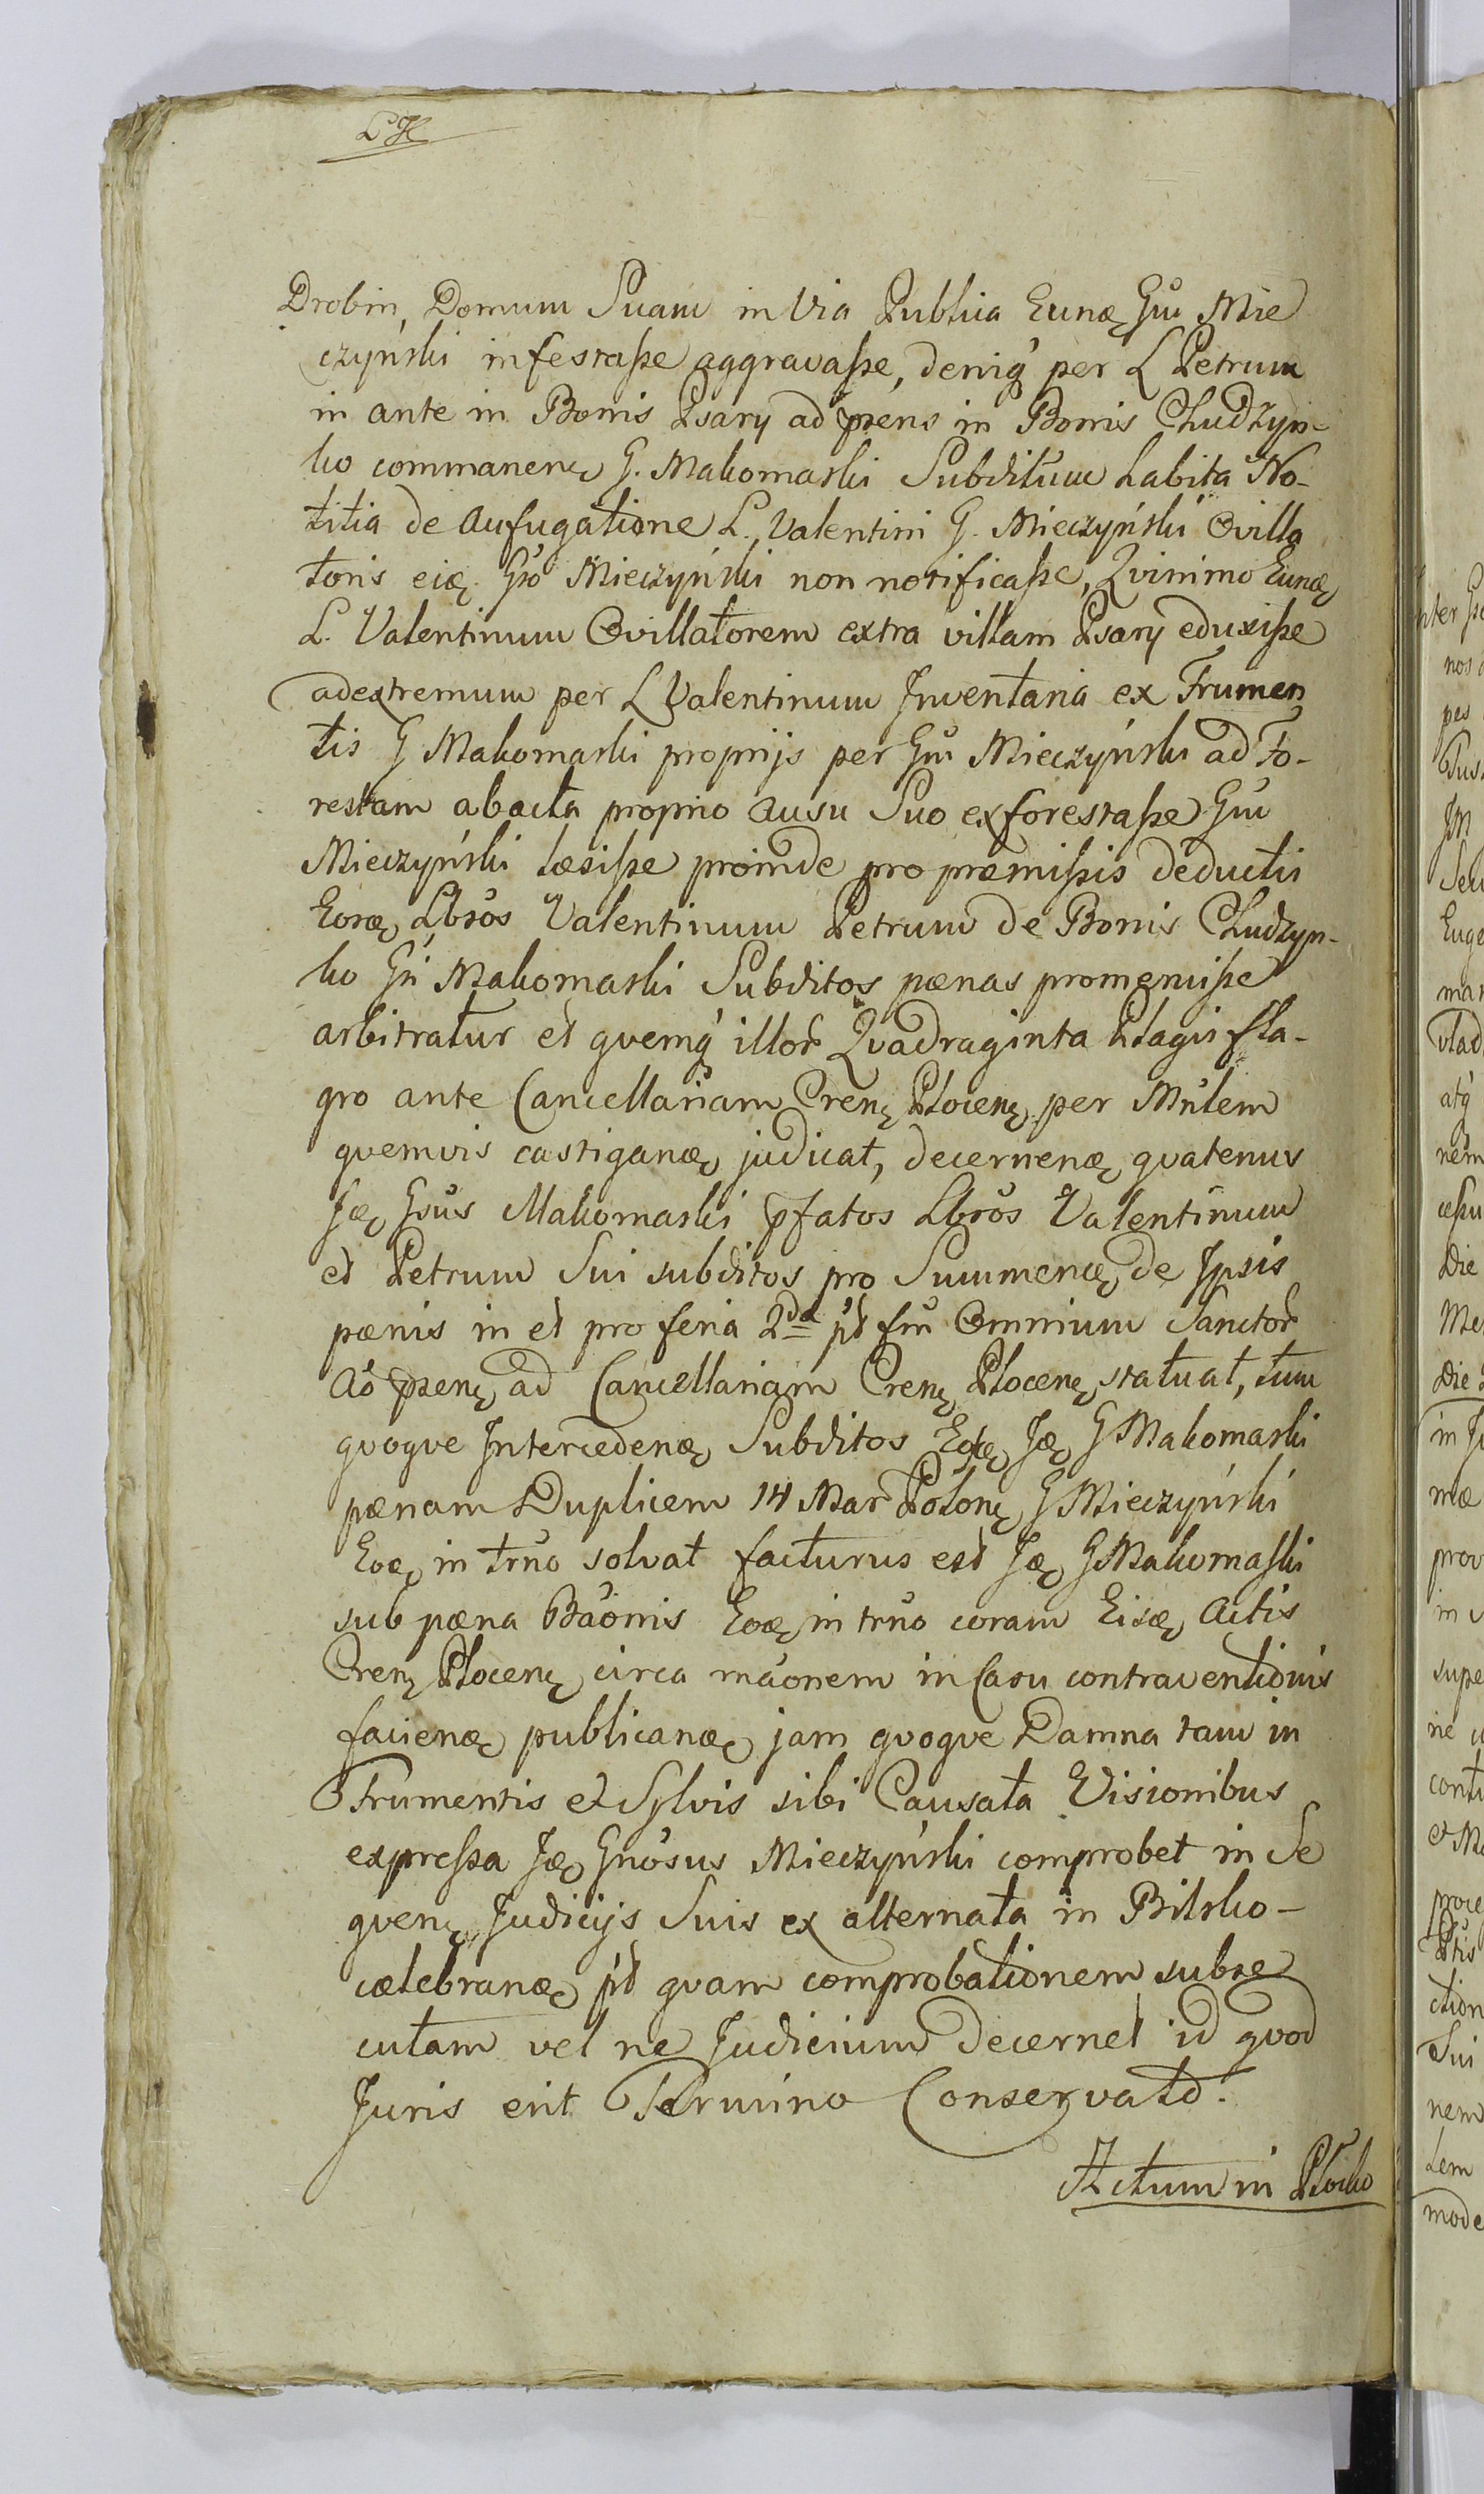 LH
Drobin, Domum Suam in Via Publica Eunđ Gm̃ Mie
czyński infestaße aggravaße, deniq́ per L Petrum
in ante in Bonis Psary ad p̃sens in Bonis Chudzyn-
ko commanenę G. Makomaski Subditum habita No-
titia de Aufugatione L. Valentini G. Mieczyński Ovilla
toris eiđ. Gño Mieczyński non notificaße, Qvinimo Eunđ
L. Valentinum Ovillatorem extra villam Psary eduxiße
adextremum per L Valentinum Inventaria ex Frumen
tis G Makomaski proprijs per Gm̃ Mieczyński ad Fo-
restam abacta proprio Ausu Suo exforestaße Gm̃
Mieczyński læsiße proinde pro præmißis deductis
Eosđ Lbros̃ Valentinum Petrum de Bonis Chudzyn-
ko Gñ Makomaski Subditos pænas promeruiße
arbitratur et qvemq́ illor̃ Qvadraginta Plagis fla-
gro ante Cancellariam Cren̄ę Plocenę per Mñlem
qvemvis castiganđ judicat, decernenđ qvatenus
Iđ Gsũs Makomaski p̃fatos Lbros̃ Valentinum
et Petrum Sui subditos pro Summenđ de Ipsis
pænis in et pro feria 2da p̃t fm̃ Omnium Sanctor̃
Aõ p̃senę ad Cancellariam Crenę Plocenę statuat, tum
qvoqve Intercedenđ Subditos Eosđ Iđ G Makomaski
pænam Duplicem 14 Mar̃ Polonę G Mieczyński
Eođ in trño solvat facturus est Iđ G Makomaski
sub pæna Bãonis Eođ in trño coram Eisđ Actis
Crenę Plocenę circa mãonem in Casu contraventionis
facienđ publicanđ jam qvoqve Damna tam in
Frumentis et Sylvis sibi Causata Visionibus
expreßa Iđ Gnõsus Mieczyński comprobet in Se
qvenę Judicijs Suis ex alternata in Bilsko-
cælebranđ p̃t qvam comprobationem subse
cutam vel ne Judicium decernet id qvod
Juris erit Termino Conservato.
Actum in Plocko